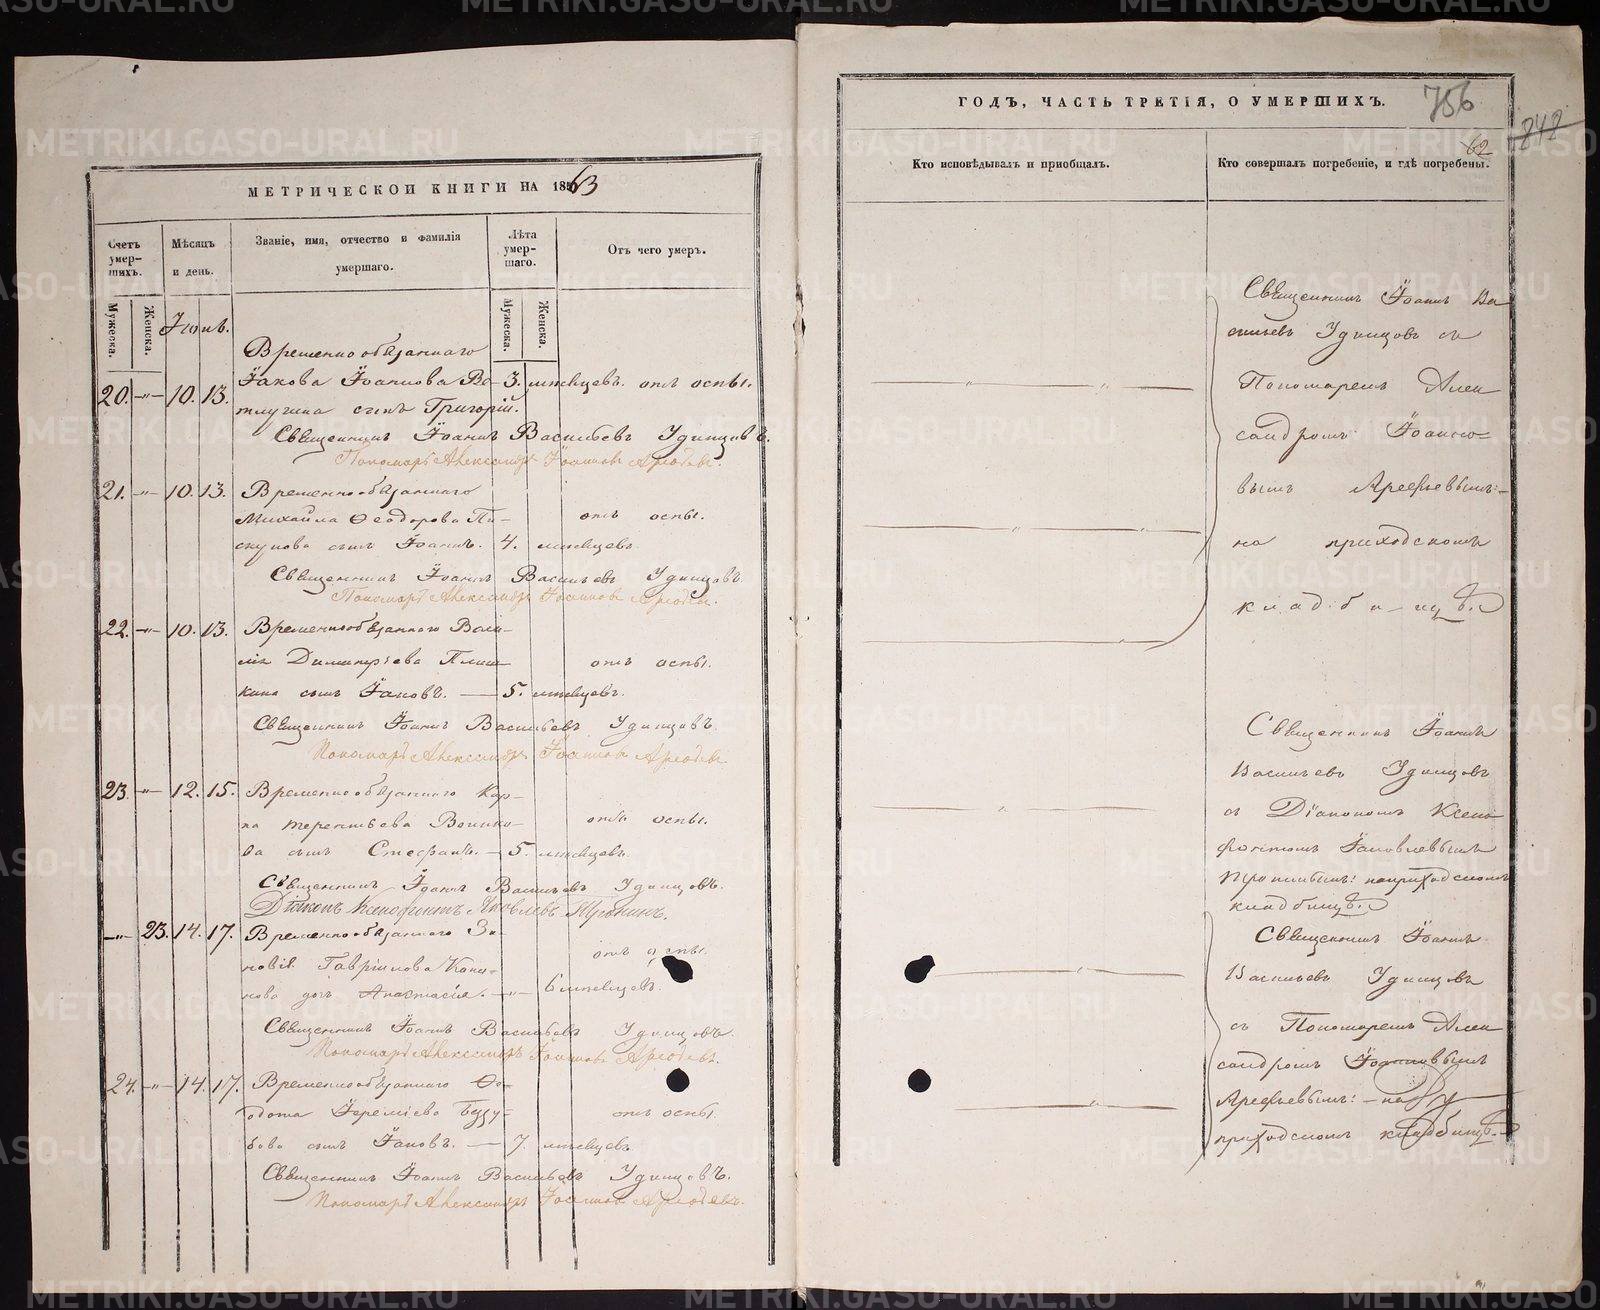 МЕТРИЧЕСКОЙ КНИГИ НА 1863
Счетъ умер-шихъ.
Мѣсяцъ и день.
Званіе, имя, отчество и фамилія умершаго.
Лѣта умер-шаго.
Отъ чего умеръ.
Мужеска.
Женска.
Мужеска.
Женска.
Іюнь.
Временнообязаннаго
20. -"- 10. 13. Іакова Іоаннова Ве- 3. мѣсяцевъ. отъ оспы.
тлугина сынъ Григорій.
Священникъ Іоаннъ Васильевъ Удинцовъ.
Пономарь Александръ Іоанновъ Арефьевъ.
21. -"- 10. 13. Временнообязаннаго
Михаила Ѳеодорова Пи- отъ оспы.
скунова сынъ Іоаннъ. 4. мѣсяцевъ
Священникъ Іоаннъ Васильевъ Удинцовъ
Пономарь Александръ Іоанновъ Арефьевъ.
22. -"- 10. 13. Временнообязаннаго Васи-
лія Димитріева отъ оспы.
кина сынъ Іаковъ. — 5. мѣсяцевъ.
Священникъ Іоаннъ Васильевъ Удинцовъ.
Пономарь Александръ Іоанновъ Арефьевъ
23. -"- 12. 15. Временнообязаннаго Кар-
па Терентьева отъ оспы.
ва сынъ Стефанъ. — 5. мѣсяцевъ.
Священникъ Іоаннъ Васильевъ Удинцовъ.
Діаконъ Ксенофонтъ Яковлевъ Тронинъ.
-"- 23. 14. 17. Временнообязаннаго Зи-
новія Гавріилова Коно- отъ оспы.
нова дочь Анастасія. -"- 6 мѣсяцевъ.
Священникъ Іоаннъ Васильевъ Удинцовъ.
Пономарь Александръ Іоанновъ Арефьевъ.
24. -"- 14. 17. Временнообязаннаго Ѳе-
одота Іереміева отъ оспы.
сынъ Іаковъ. — 7. мѣсяцевъ
Священникъ Іоаннъ Васильевъ Удинцовъ.
Пономарь Александръ Іоанновъ Арефьевъ.
ГОДЪ, ЧАСТЬ ТРЕТІЯ, О УМЕРШИХЪ.
756
848
62
Кто исповѣдывалъ и пріобщалъ.
Кто совершалъ погребеніе, и гдѣ погребены.
Священникъ Іоаннъ Ва
сильевъ Удинцовъ съ
Пономаремъ Алек
сандромъ Іоанно-
вымъ Арефьевымъ:-
на приходскомъ
кладбищѣ.
Священникъ Іоаннъ
Васильевъ Удинцовъ
съ Діакономъ Ксено
фонтомъ Іаковлевымъ
Тронинымъ: на приходскомъ
кладбищѣ.
Священникъ Іоаннъ
Васильевъ Удинцовъ
съ Пономаремъ Алек
сандромъ Іоанновымъ
Арефьевымъ: - на
приходскомъ кладбищѣ.
METRIKI.GASO-URAL.RU